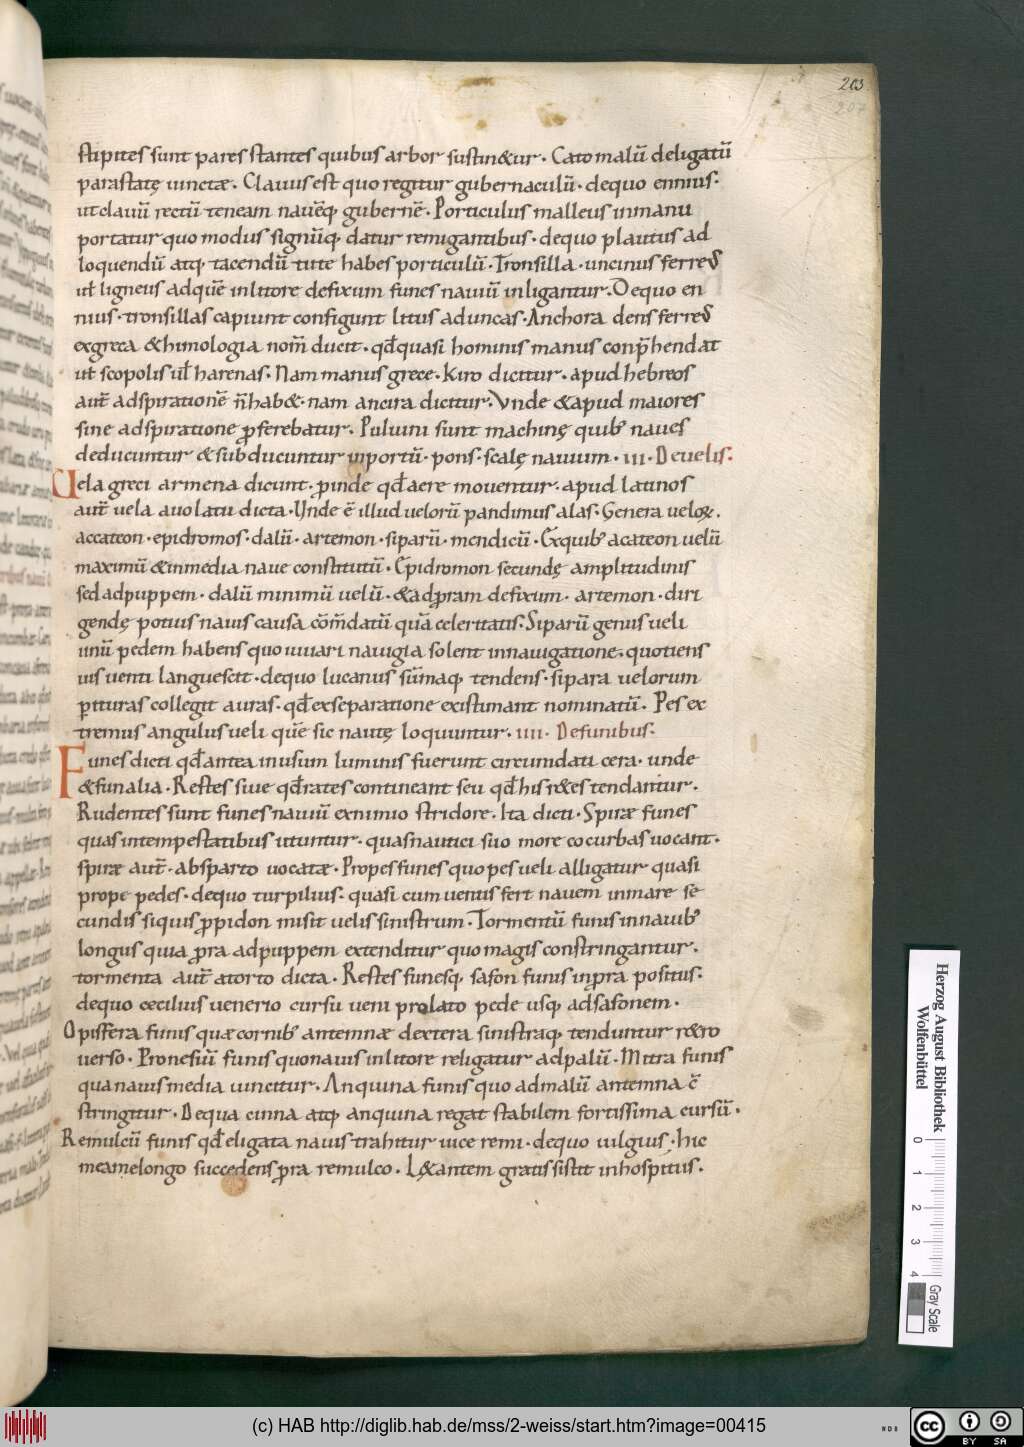 203
207
stipites sunt pares stantes quibus arbor sustin&ur. Cato malū deligatū
parastatę uinctæ. Clauus est quo regitur gubernaculū. dequo ennius.
utclauū rectū teneam nauēq; gubernē. Porticulus malleus inmanu
portatur quo modus signūq; datur remigantibus. dequo plautus ad
loquendū atq; tacendū tute habes porticulū. Tronsilla. uncinus ferreus
uł ligneus adquē inlitore defixum funes nauiū inligantur. Dequo en
nius. tronsillas capiunt configunt litus aduncas. Anchora dens ferreus
exgreca &himologia nom̄ ducit. qđquasi hominis manus conp̄hendat
uł scopolis uł harenas. Nam manus grece. Kiro dicitur. apud hebreos
aut̄ adspirationē n̄hab&. nam ancira dicitur. Vnde &apud maiores
sine adspiratione ꝓferebatur. Puluini sunt machinę quib; naues
deducuntur &subducuntur inportū. pons. scalę nauium. iii. Deuelis.
Uela greci armena dicunt. ꝓinde qđ aere mouentur. apud latinos
aut̄ uela auolatu dicta. Unde ē illud uelorū pandimus alas. Genera ueloꝝ.
accateon. epidromos. dalū. artemon. siparū. mendicū. Exquib; acateon uelū
maximū &inmedia naue constitutū. Epidromon secundę amplitudinis
sed adpuppem. dalū minimū uelū. &adꝓram defixum. artemon. diri
gendę potius nauis causa cōm̄datū quā celeritatis. Siparū genus ueli
unū pedem habens quo iuuari nauigia solent innauigatione. quotiens
uis uenti languescit. dequo lucanus sūmaq; tendens. sipara uelorum
ꝑituras collegit auras. qđ exseparatione existimant nominatū. Pes ex
tremus angulus ueli quē sic nautę loquuntur. iiii. Defunibus.
Funes dicti qđ antea inusum luminis fuerunt circumdati cera. unde
&funalia. Restes siue qđ rates contineant seu qđ his r&es tendantur.
Rudentes sunt funes nauiū exnimio stridore. Ita dicti. Spiræ funes
quas intempestatibus utuntur. quas nautici suo more cocurbas uocant.
spiræ aut̄. absparto uocatæ. Propes funes quo pes ueli alligatur quasi
prope pedes. dequo turpilius. quasi cum uentus fert nauem inmare se
cundis siquis ꝓpidon misit uelis sinistrum. Tormentū funis innauib;
longus quia ꝓra adpuppem extenditur quo magis constringantur.
tormenta aut̄ atorto dicta. Restes funesq; safon funis inꝓra positus.
dequo cecilius uenerio cursu ueni prolato pede usq; adsafonem.
Opisfera funis quæ cornib; antemnæ dextera sinistraq; tenduntur r&ro
uerso. Pronesiū funis quo nauis inlitore religatur adpalū. Mitra funis
qua nauis media uincitur. Anquina funis quo admalū antemna cō
stringitur. Dequa cinna atq; anquina regat stabilem fortissima cursū.
Remulcū funis qđ eligata nauis trahitur uice remi. dequo uulgius. hic
meamelongo succedens ꝓra remulco. L&antem gratis sistit inhospitus.
Herzog August Bibliothek
Wolfenbüttel
0 1 2 3 4
Gray Scale
(c) HAB http://diglib.hab.de/mss/2-weiss/start.htm?image=00415
WDB
cc
BY SA